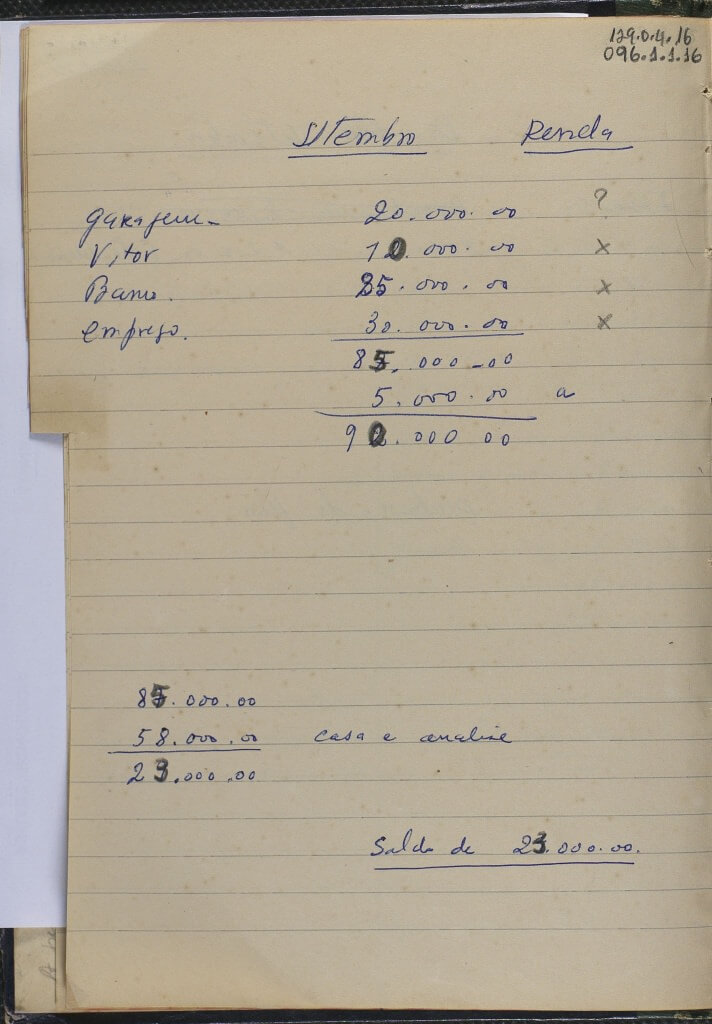 129.0.4.16
096.1.1.16
Setembro Renda
garagem 20.000.00 ?
Vitor 10.000.00 x
Banco. 25.000.00 x
emprego. 30.000.00 x
85.000-00
5.000.00 a
90.000 00
85.000.00
58.000.00 casa e analise
23.000.00
Saldo de 23.000.00.